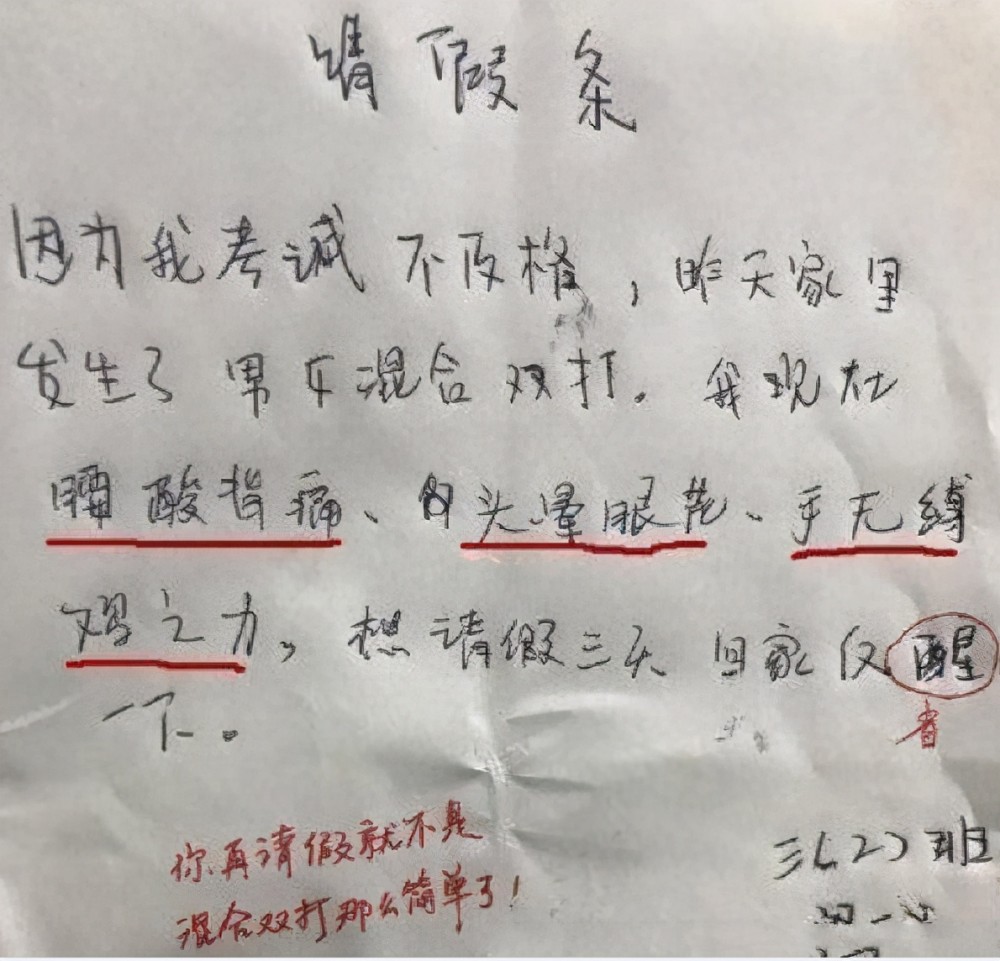 请假条
因为我考诫不及格，昨天家里
发生了男女混合双打。我现在
腰酸背痛、头晕眼花、手无缚
鸡之力，想请假三天回家反醒
一下。
省
你再请假就不是
混合双打那么简单了！
三（2）班